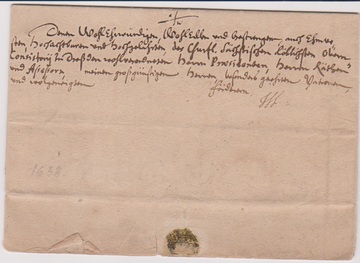 Denen WohlEhrwürdigen, WohlEdlen und Gestrengen, auch Ehrnve-
sten Hochachtbaren und Hochgelahrten des Churfl. Sächsischen löblichsten Ober
Consistorij in Dreßden wohlverordneten Herrn Praesidenten, Herrn Räthen
und Assessorn meinen großgünstigen Herren, besonders geehrten Patronen,
und
1638